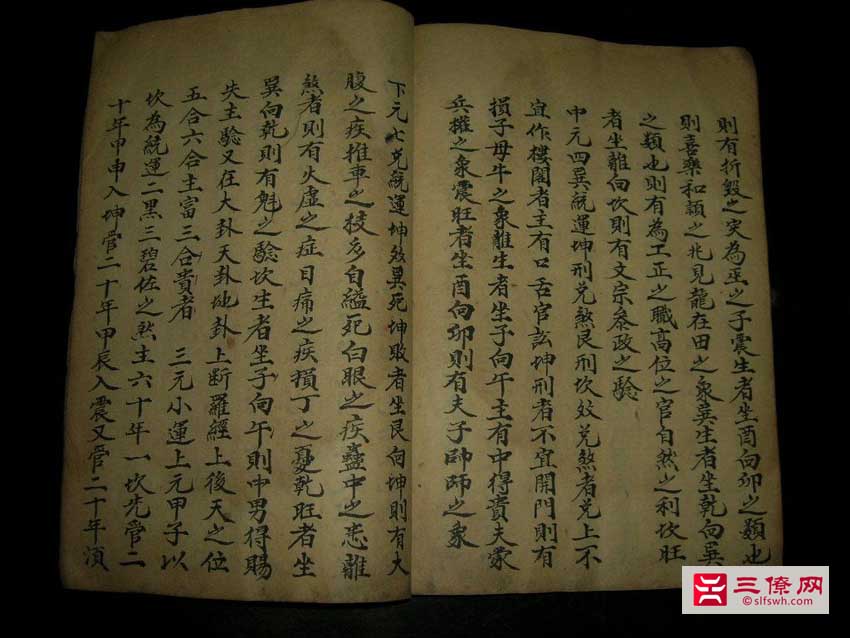 則有折毀之灾為巫之子震生者坐酉向卯之類也
則喜樂和顔之兆見龍在田之象巽生者坐乾向巽
之類也則有為工正之職高位之官自然之利坎旺
者坐離向坎則有文宗叅政之驗
中元四巽統運坤刑兌煞艮刑坎效兌煞者兌上不
宜作樓閣者主有口舌官訟坤刑者不宜開門則有
損子母牛之象離生者坐子向午主有中得貴夫蒙
兵權之象震旺者坐酉向卯則有夫子師師之象
下元七兌統運坤效巽死坤敗者坐艮向坤則有大
腹之疾推車之技多自縊死白眼之疾蠱中之患離
煞者則有火虛之症目痛之疾損丁之憂乾旺者坐
巽向乾則有魁之驗坎生者坐子向午則中男得賜
失主驗又在大卦天卦地卦上断羅經上後天之位
五合六合主富三合貴者 三元小運上元甲子以
坎為統運二黑三碧佐之然主六十年一坎先管二
十年甲申入坤管二十年甲辰入震又管二十年須
三僚网
©slfswh.com